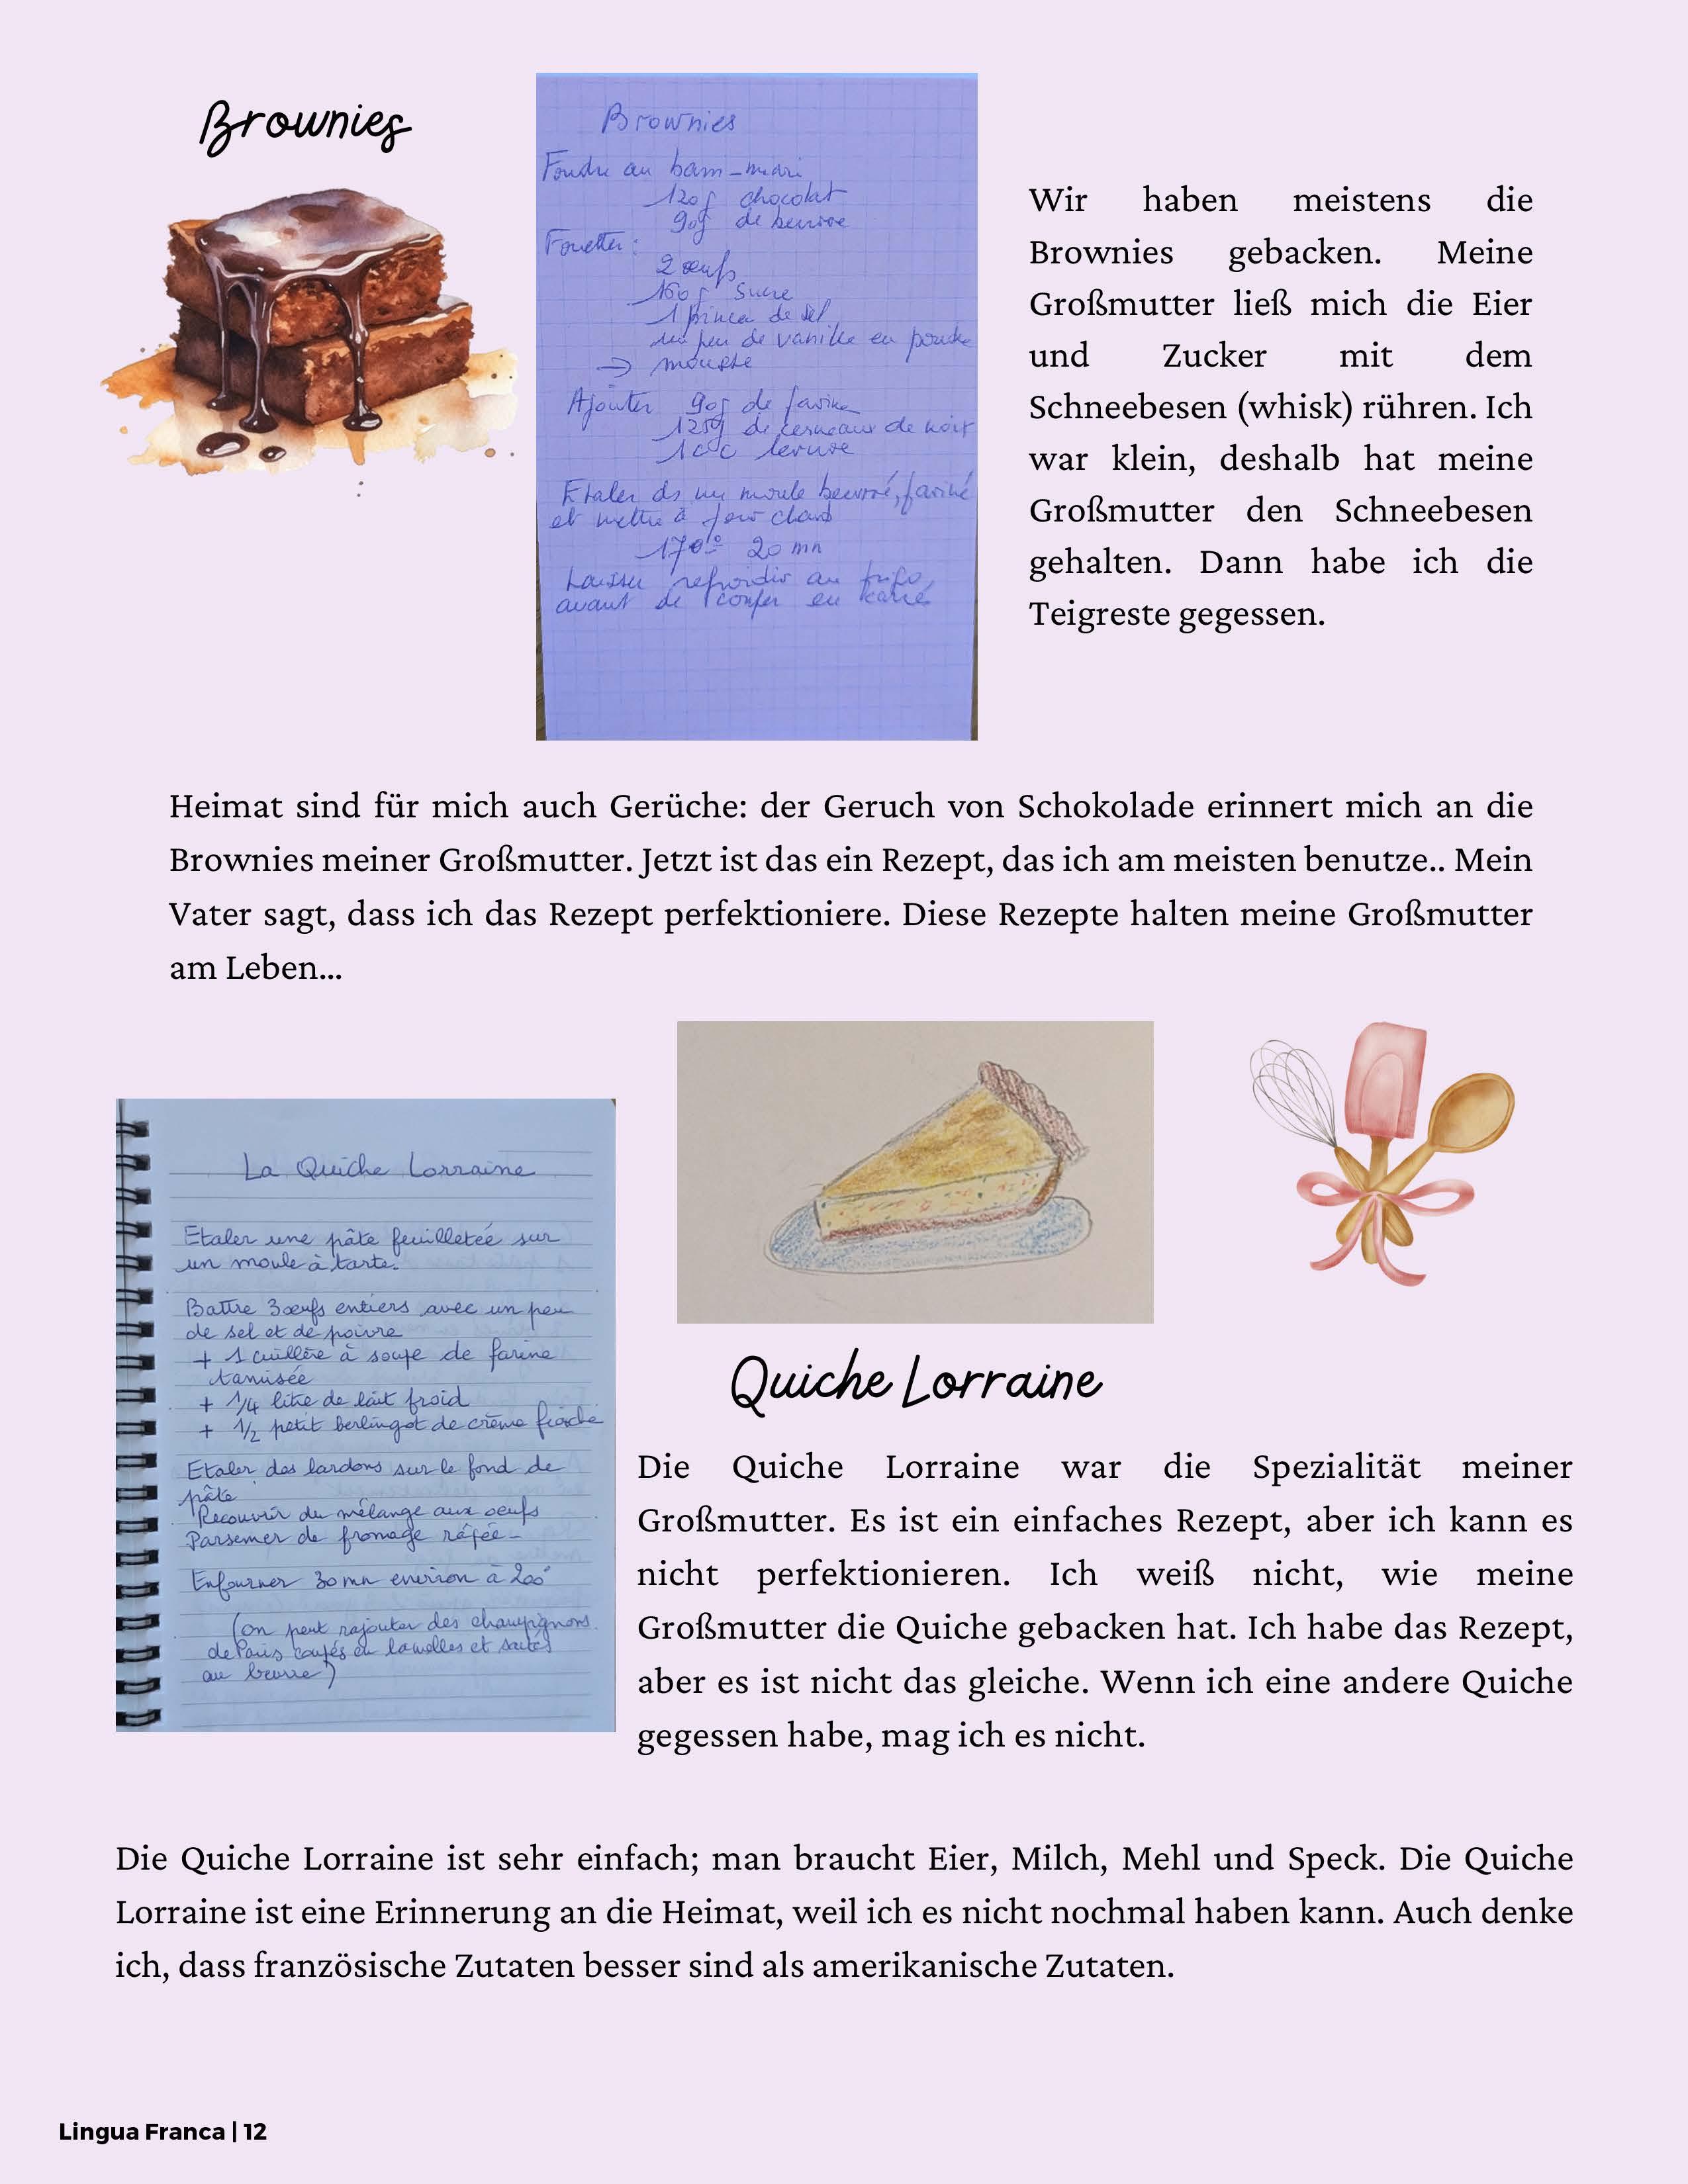 Brownies
Brownies
Fondre au bain-mari
120g chocolat
90g de beurre
Fouetter :
2 œufs
160g sucre
1 pincée de sel
un peu de vanille en poudre
→ mousse
Ajouter 90g de farine
125g de cerneaux de noix
1 cc levure
Etaler ds un moule beurré, fariné
et mettre à four chaud
170° 20 mn
Laisser refroidir au frigo,
avant de couper en carré
Wir haben meistens die
Brownies gebacken. Meine
Großmutter ließ mich die Eier
und Zucker mit dem
Schneebesen (whisk) rühren. Ich
war klein, deshalb hat meine
Großmutter den Schneebesen
gehalten. Dann habe ich die
Teigreste gegessen.
Heimat sind für mich auch Gerüche: der Geruch von Schokolade erinnert mich an die
Brownies meiner Großmutter. Jetzt ist das ein Rezept, das ich am meisten benutze.. Mein
Vater sagt, dass ich das Rezept perfektioniere. Diese Rezepte halten meine Großmutter
am Leben...
La Quiche Lorraine
Etaler une pâte feuilletée sur
un moule à tarte.
Battre 3 œufs entiers avec un peu
de sel et de poivre
+ 1 cuillère à soupe de farine
tamisée
+ 1/4 litre de lait froid
+ 1/2 petit berlingot de crème fraîche
Etaler des lardons sur le fond de
pâte
Recouvrir du mélange aux oeufs
Parsemer de fromage râpée -
Enfourner 30 mn environ à 200°
(on peut rajouter des champignons
de Paris coupés en lamelles et sautés
au beurre)
Quiche Lorraine
Die Quiche Lorraine war die Spezialität meiner
Großmutter. Es ist ein einfaches Rezept, aber ich kann es
nicht perfektionieren. Ich weiß nicht, wie meine
Großmutter die Quiche gebacken hat. Ich habe das Rezept,
aber es ist nicht das gleiche. Wenn ich eine andere Quiche
gegessen habe, mag ich es nicht.
Die Quiche Lorraine ist sehr einfach; man braucht Eier, Milch, Mehl und Speck. Die Quiche
Lorraine ist eine Erinnerung an die Heimat, weil ich es nicht nochmal haben kann. Auch denke
ich, dass französische Zutaten besser sind als amerikanische Zutaten.
Lingua Franca | 12